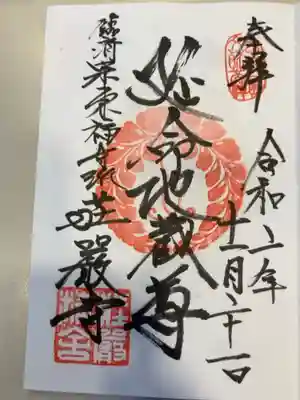 奉拝
令和二年
十一月二十一日
延命地蔵尊
臨済宗東福寺派荘嚴寺